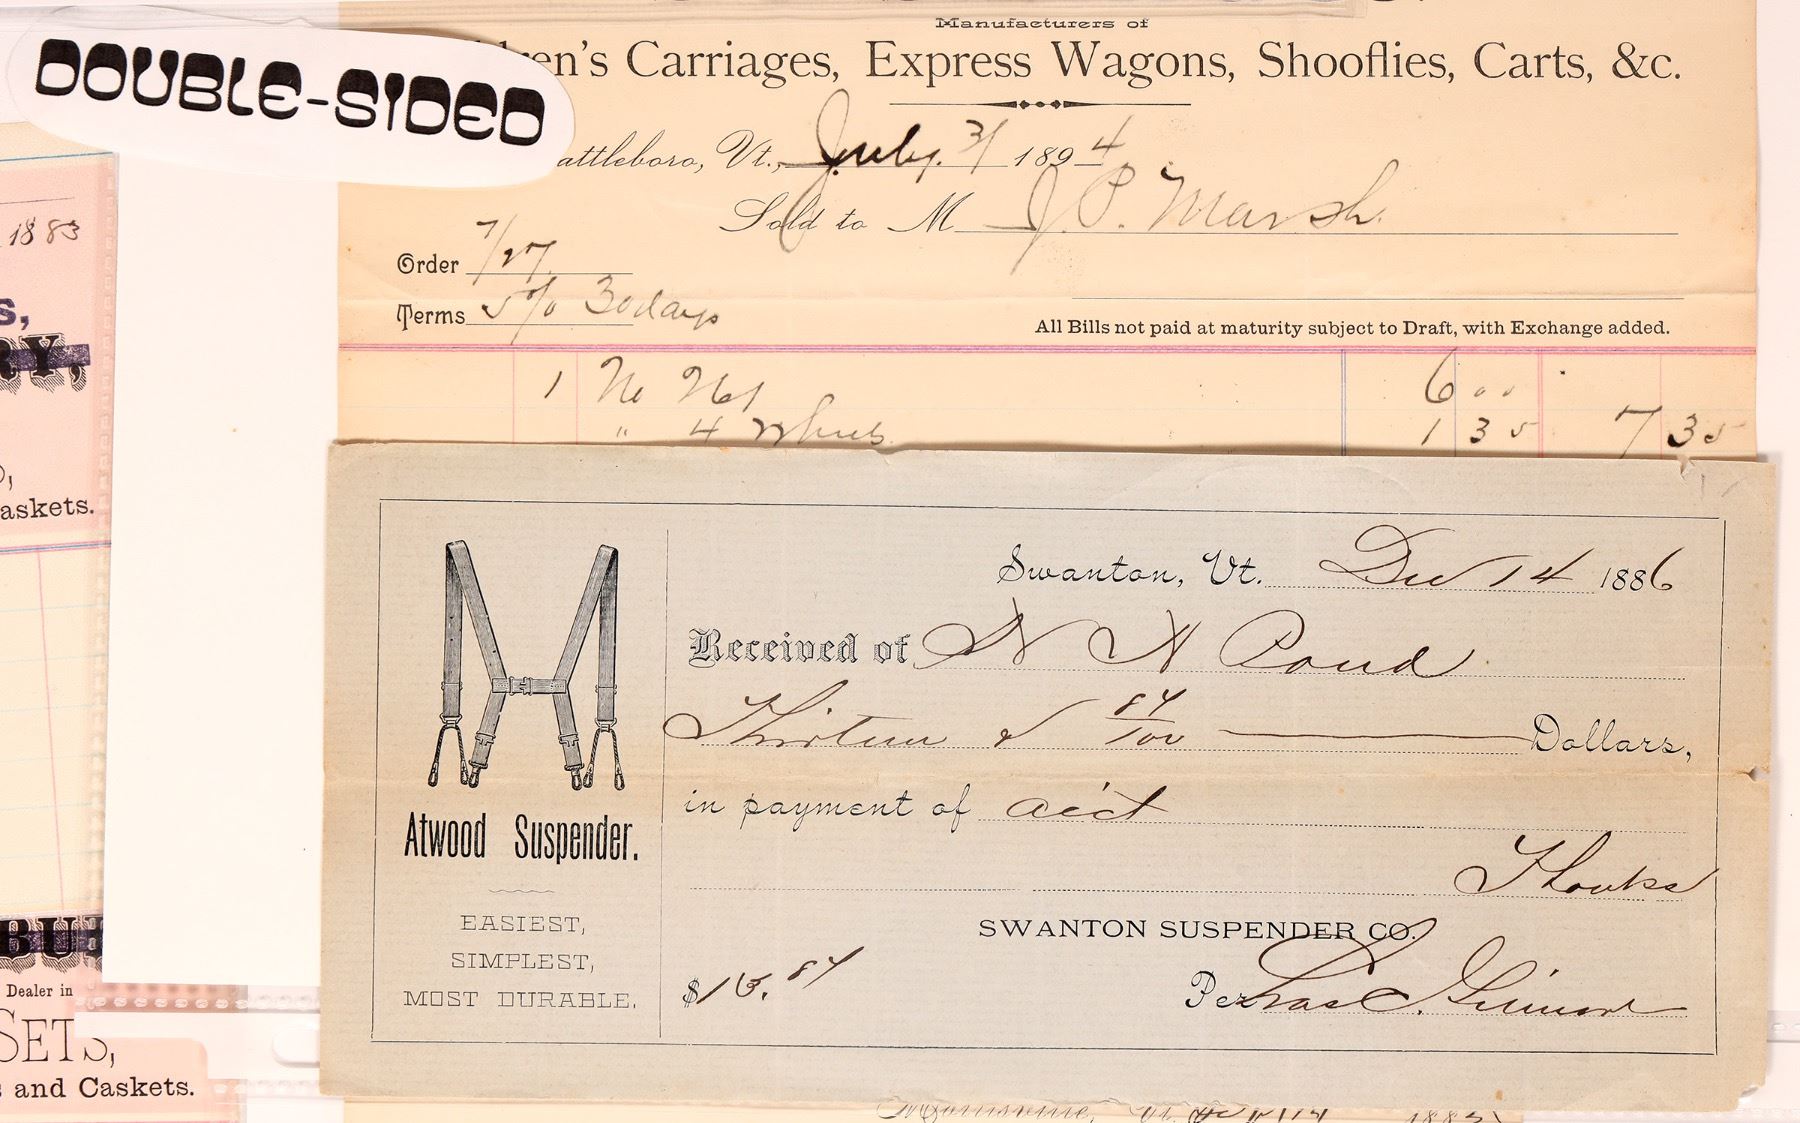 DOUBLE-SIDED
Manufacturers of
dren's Carriages, Express Wagons, Shooflies, Carts, &c.
attleboro, Vt., July. 31 1894
Sold to M J. P. Marsh.
Order 7/27
Terms 5% 30 days
All Bills not paid at maturity subject to Draft, with Exchange added.
1 No 6 00
" 4 1 35 7 35
1883
s,
RY,
askets.
BU
Dealer in
SETS,
and Caskets.
Swanton, Vt. Dec 14 1886
Received of N H Pond
Thirteen & 84/100 Dollars,
in payment of acct
Thanks
SWANTON SUSPENDER CO.
$13.84 Per
Atwood Suspender.
EASIEST,
SIMPLEST,
MOST DURABLE.